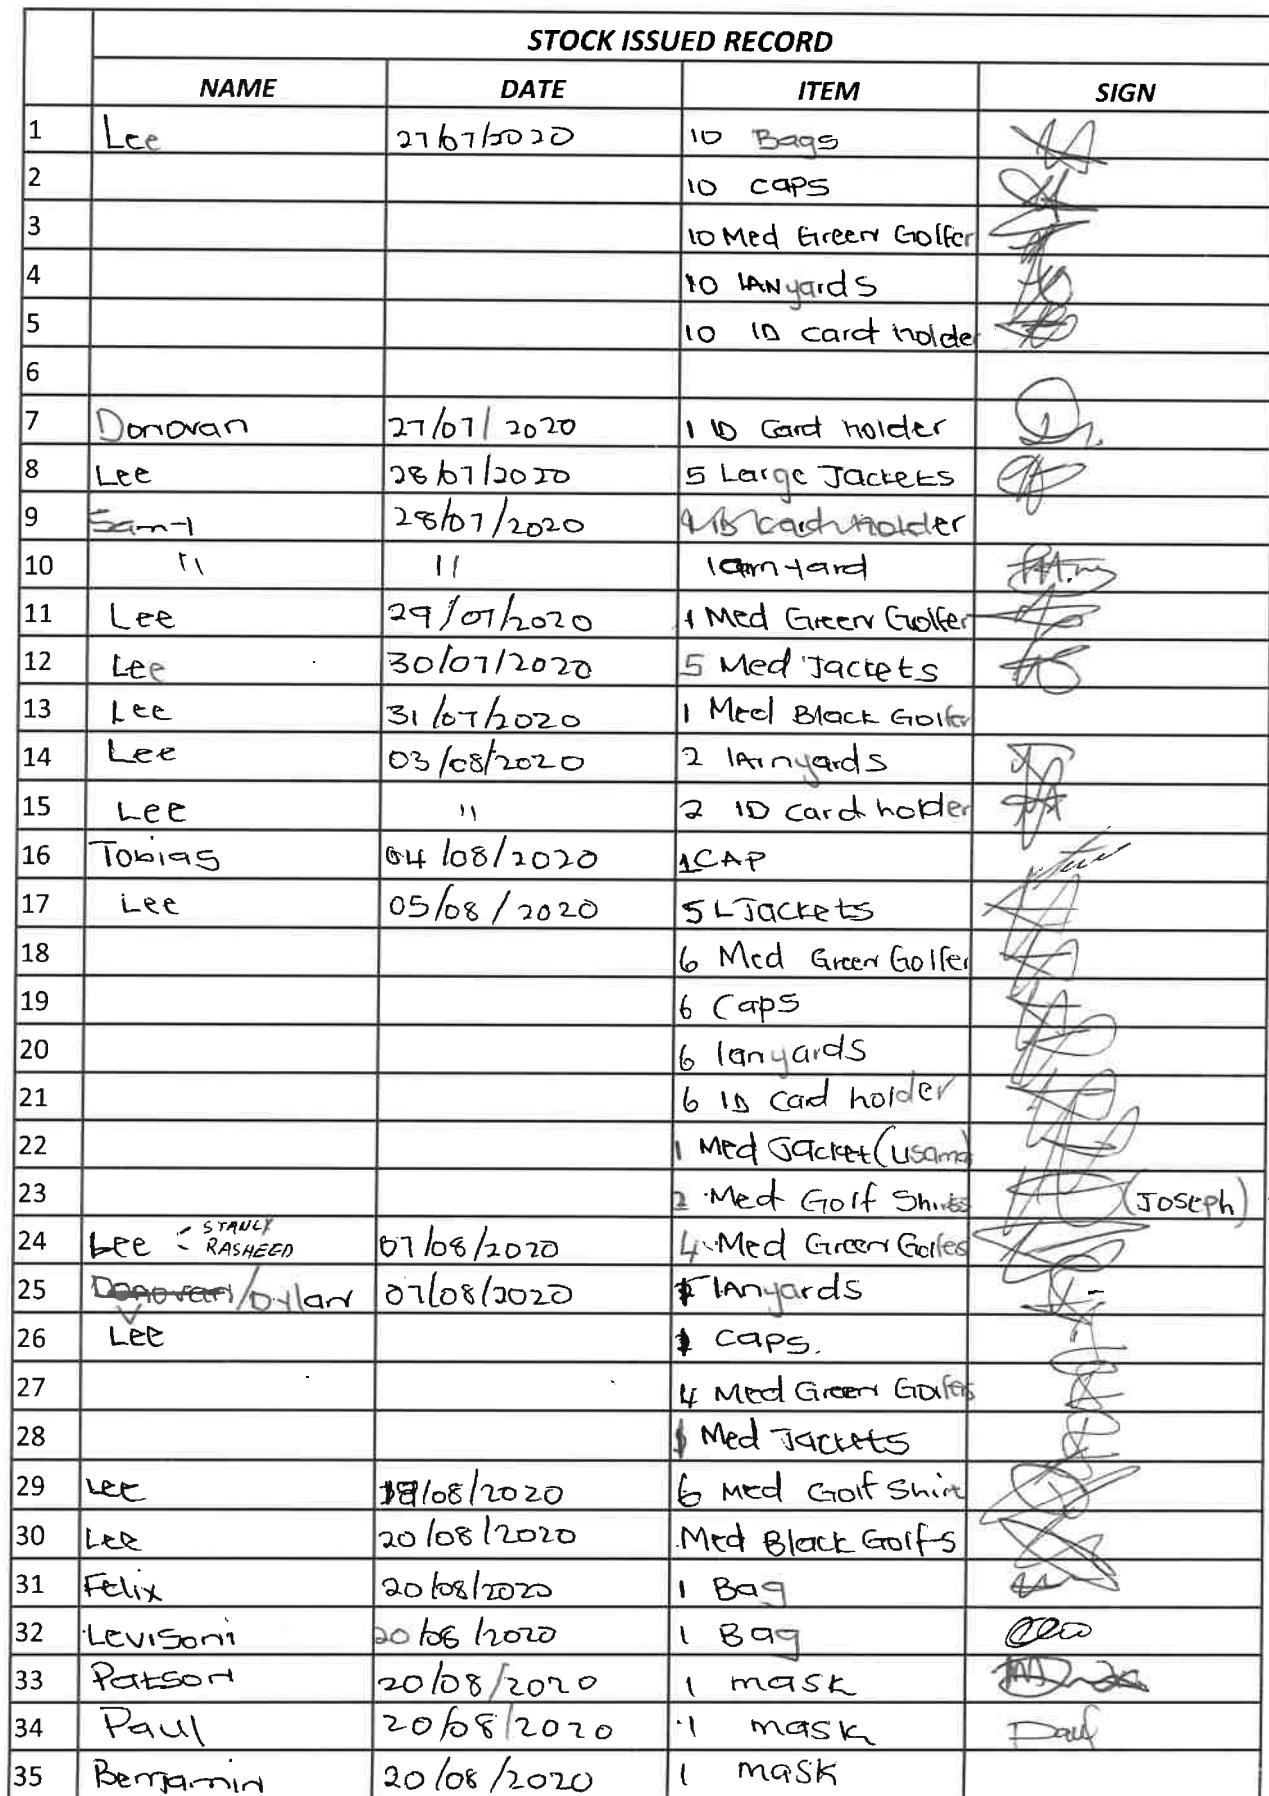 STOCK ISSUED RECORD
NAME DATE ITEM SIGN
1 Lee 27/07/2020 10 Bags
2 10 caps
3 10 Med Green Golfer
4 10 lANyards
5 10 ID card holder
6
7 Donovan 27/07/2020 1 ID Card holder
8 Lee 28/07/2020 5 Large Jackets
9 28/07/2020 card holder
10 " "
11 Lee 29/07/2020 1 Med Green Golfer
12 Lee 30/07/2020 5 Med Jackets
13 Lee 31/07/2020 1 Med Black Golfer
14 Lee 03/08/2020 2 lArnyards
15 Lee " 2 ID card holder
16 Tobias 04/08/2020 1 CAP
17 Lee 05/08/2020 5 L Jackets
18 6 Med Green Golfer
19 6 Caps
20 6 lanyards
21 6 ID card holder
22 1 Med Jacket (usama
23 2 Med Golf Shirts (JOSEPH)
24 Lee - STANLY RASHEED 07/08/2020 4 Med Green Golfes
25 Donovan/Dylan 07/08/2020 lAnyards
26 Lee caps.
27 4 Med Green Golfers
28 Med Jackets
29 Lee /08/2020 6 Med Golf Shirt
30 Lee 20/08/2020 Med Black Golfs
31 Felix 20/08/2020 1 Bag
32 Levisoni 20/08/2020 1 Bag
33 Patson 20/08/2020 1 mask
34 Paul 20/08/2020 1 mask Paul
35 Benjamin 20/08/2020 1 mask